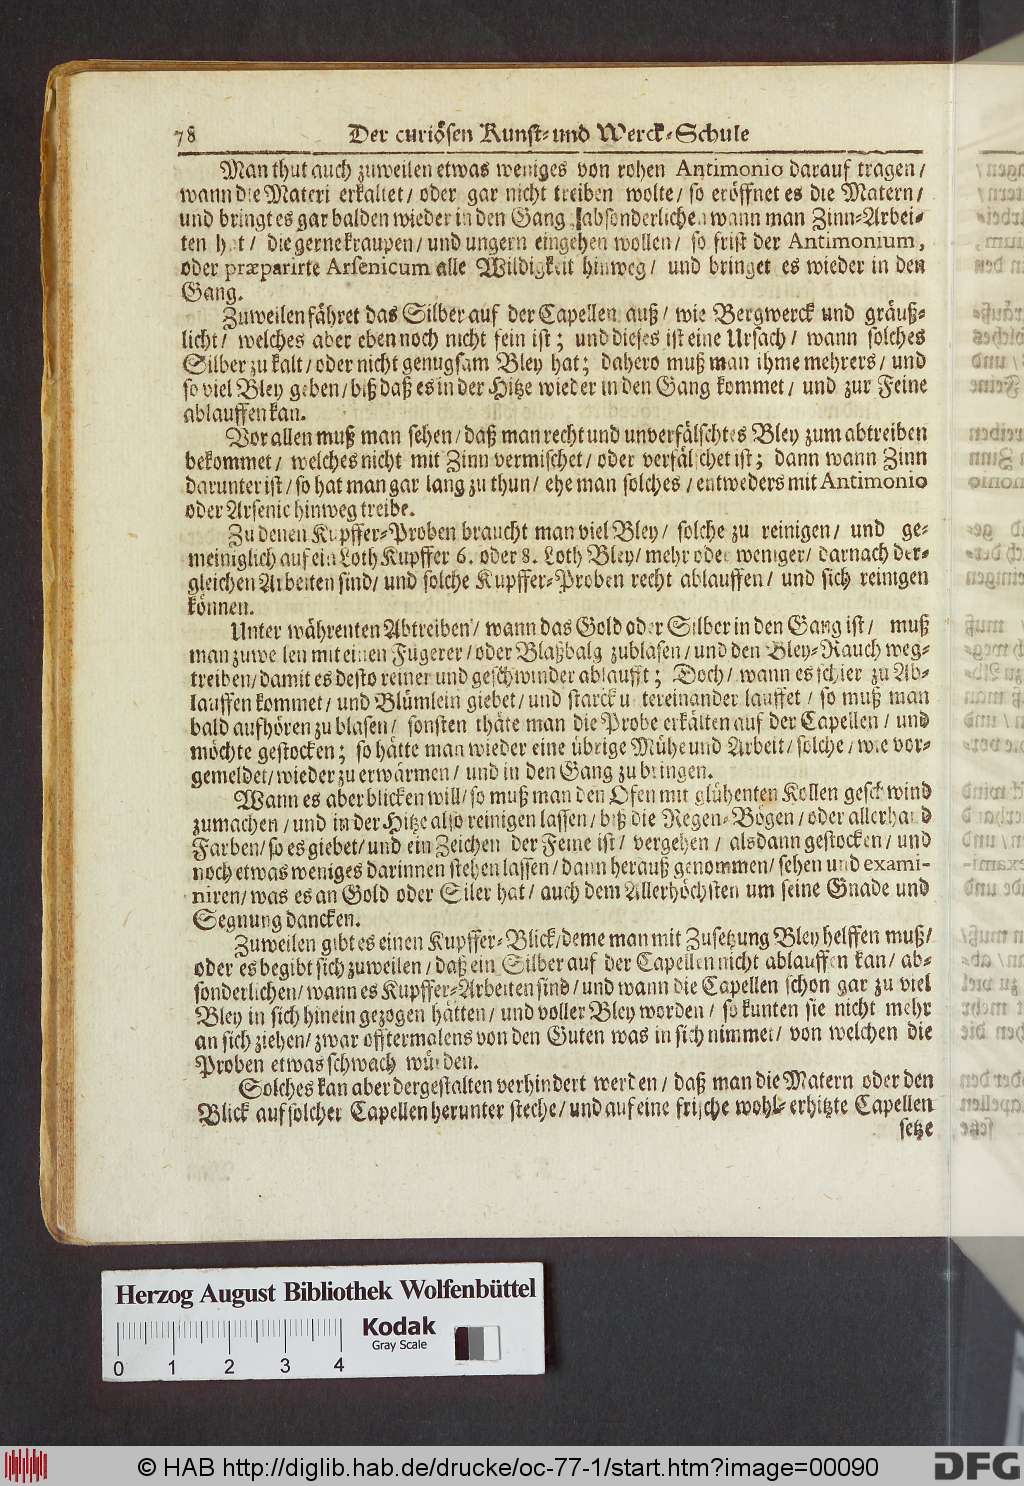 78 Der curiösen Kunst- und Werck-Schule
Man thut auch zuweilen etwas weniges von rohen Antimonio darauf tragen/
wann die Materi erkaltet/ oder gar nicht treiben wolte/ so eröffnet es die Matern/
und bringt es gar balden wieder in den Gang, absonderlichen wann man Zinn-Arbei-
ten hat/ die gerne kraupen/ und ungern eingehen wollen/ so frist der Antimonium,
oder præparirte Arsenicum alle Wildigkeit hinweg/ und bringet es wieder in den
Gang.
Zuweilen fähret das Silber auf der Capellen auß/ wie Bergwerck und gräuß-
licht/ welches aber eben noch nicht fein ist; und dieses ist eine Ursach/ wann solches
Silber zu kalt/ oder nicht genugsam Bley hat; dahero muß man ihme mehrers/ und
so viel Bley geben/ biß daß es in der Hitze wieder in den Gang kommet/ und zur Feine
ablauffen kan.
Vor allen muß man sehen/ daß man recht und unverfälschtes Bley zum abtreiben
bekommet/ welches nicht mit Zinn vermischet/ oder verfälschet ist; dann wann Zinn
darunter ist/ so hat man gar lang zu thun/ ehe man solches/ entweders mit Antimonio
oder Arsenic hinweg treibe.
Zu denen Kupffer-Proben braucht man viel Bley/ solche zu reinigen/ und ge-
meiniglich auf ein Loth Kupffer 6. oder 8. Loth Bley/ mehr oder weniger/ darnach der-
gleichen Arbeiten sind/ und solche Kupffer-Proben recht ablauffen/ und sich reinigen
können.
Unter währenten Abtreiben/ wann das Gold oder Silber in den Gang ist/ muß
man zuweilen mit einen Fügerer/ oder Blaßbalg zublasen/ und den Bley-Rauch weg-
treiben/ damit es desto reiner und geschwinder ablaufft; Doch/ wann es schier zu Ab-
lauffen kommet/ und Blümlein giebet/ und starck untereinander lauffet/ so muß man
bald aufhören zu blasen/ sonsten thäte man die Probe erkälten auf der Capellen/ und
möchte gestocken; so hätte man wieder eine übrige Mühe und Arbeit/ solche/ wie vor-
gemeldet/ wieder zu erwärmen/ und in den Gang zu bringen.
Wann es aber blicken will/ so muß man den Ofen mit glühenten Kollen geschwind
zumachen/ und in der Hitze also reinigen lassen/ biß die Regen-Bögen/ oder allerhand
Farben/ so es giebet/ und ein Zeichen der Feine ist/ vergehen/ alsdann gestocken/ und
noch etwas weniges darinnen stehen lassen/ dann herauß genommen/ sehen und exami-
niren/ was es an Gold oder Siler hat/ auch dem Allerhöchsten um seine Gnade und
Segnung dancken.
Zuweilen gibt es einen Kupffer-Blick/ deme man mit Zusetzung Bley helffen muß/
oder es begibt sich zuweilen/ daß ein Silber auf der Capellen nicht ablauffen kan/ ab-
sonderlichen/ wann es Kupffer-Arbeiten sind/ und wann die Capellen schon gar zu viel
Bley in sich hinein gezogen hätten/ und voller Bley worden/ so kunten sie nicht mehr
an sich ziehen/ zwar offtermalens von den Guten was in sich nimmet/ von welchen die
Proben etwas schwach würden.
Solches kan aber dergestalten verhindert werden/ daß man die Matern oder den
Blick auf solcher Capellen herunter steche/ und auf eine frische wohl-erhitzte Capellen
setze
Herzog August Bibliothek Wolfenbüttel
Kodak
Gray Scale
0 1 2 3 4
© HAB http://diglib.hab.de/drucke/oc-77-1/start.htm?image=00090
DFG